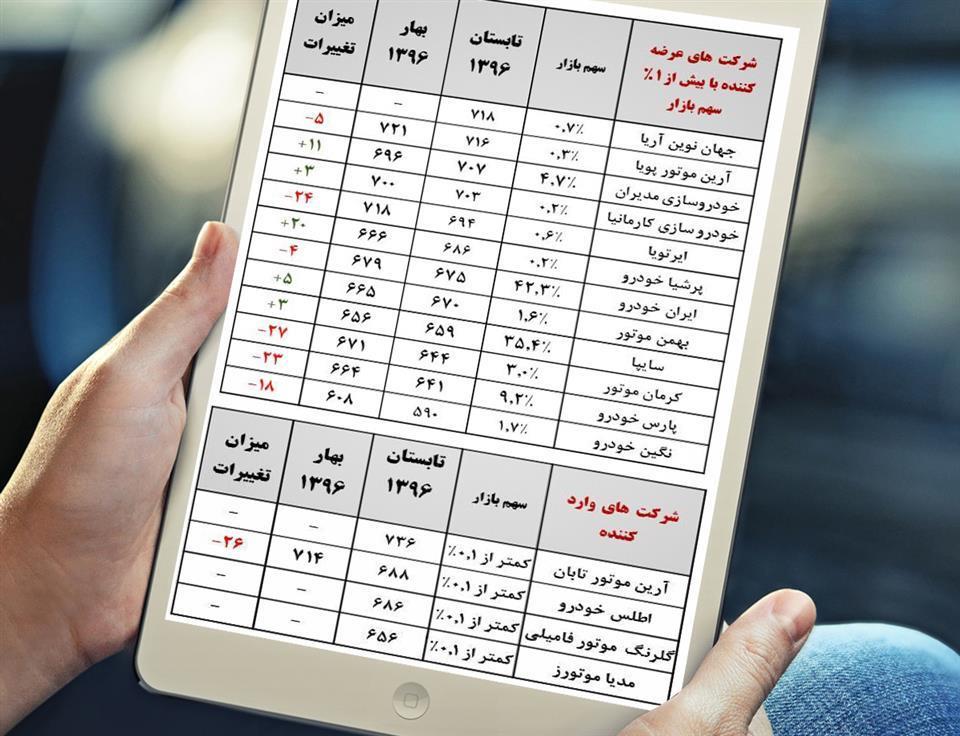 شرکت های عرضه
کننده با بیش از ۱٪
سهم بازار
سهم بازار
تابستان
۱۳۹۶
بهار
۱۳۹۶
میزان
تغییرات
جهان نوین آریا ۰.۷٪ ۷۱۸ – –
آرین موتور پویا ۰.۳٪ ۷۱۶ ۷۲۱ -۵
خودروسازی مدیران ۴.۷٪ ۷۰۷ ۶۹۶ +۱۱
خودروسازی کارمانیا ۰.۲٪ ۷۰۳ ۷۰۰ +۳
ایرتویا ۰.۶٪ ۶۹۴ ۷۱۸ -۲۴
پرشیا خودرو ۰.۲٪ ۶۸۶ ۶۶۶ +۲۰
ایران خودرو ۴۲.۳٪ ۶۷۵ ۶۷۹ -۴
بهمن موتور ۱.۶٪ ۶۷۰ ۶۶۵ +۵
سایپا ۳۵.۴٪ ۶۵۹ ۶۵۶ +۳
کرمان موتور ۳.۰٪ ۶۴۴ ۶۷۱ -۲۷
پارس خودرو ۹.۲٪ ۶۴۱ ۶۶۴ -۲۳
نگین خودرو ۱.۷٪ ۵۹۰ ۶۰۸ -۱۸
شرکت های وارد
کننده
سهم بازار
تابستان
۱۳۹۶
بهار
۱۳۹۶
میزان
تغییرات
آرین موتور تابان کمتر از ۰.۱٪ ۷۳۶ – –
اطلس خودرو کمتر از ۰.۱٪ ۶۸۸ ۷۱۴ -۲۶
گلرنگ موتور فامیلی کمتر از ۰.۱٪ ۶۸۶ – –
مدیا موتورز کمتر از ۰.۱٪ ۶۵۶ – –